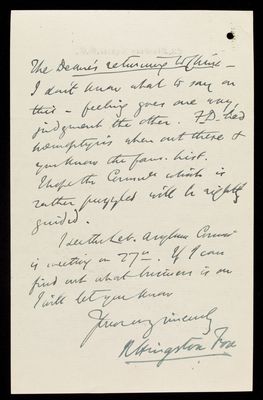 The Deane's returning to China -
I don't know what to say on
this - feeling goes one way,
judgment the other. F.D. had
hæmoptysis when out there &
you know the fam. hist.
I hope the Council which is
rather puzzled will be rightly
guided.
I see the Leb. Asylum Comee
is meeting on 27th. If I can
find out what business is on
I will let you know
Yours very sincerely
R Hingston Fox